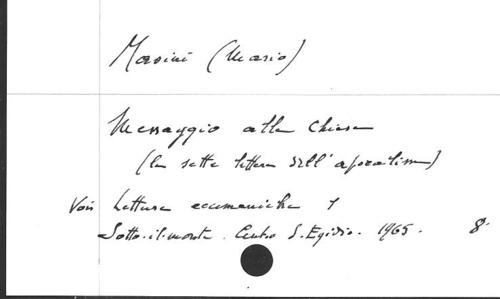 Masini (Mario)
Messaggio alla Chiesa
(le sette lettere dell'apocalisse)
Voir Letture ecumeniche 1
Sotto-il-monte. Centro S. Egidio. 1965. 8°